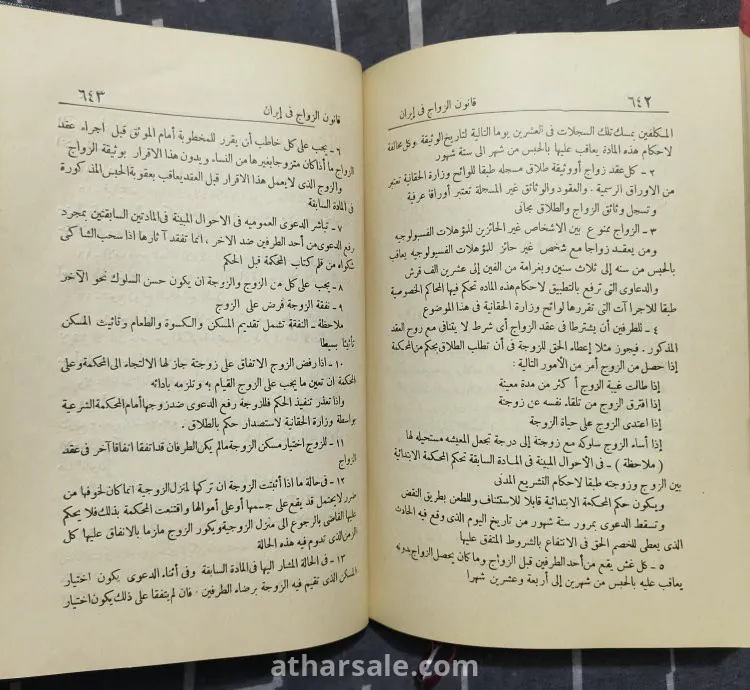 ٦٤٢
قانون الزواج فى إيران
المكلفين بمسك تلك السجلات فى العشرين يوما التالية لتاريخ الوثيقة وكل مخالفة
لاحكام هذه المادة يعاقب عليها بالحبس من شهر الى ستة شهور
٢ - كل عقد زواج أو وثيقة طلاق مسجله طبقا للوائح وزارة الحقانية تعتبر
من الاوراق الرسمية . والعقود والوثائق غير المسجلة تعتبر أوراقا عرفية
وتسجل وثائق الزواج والطلاق مجانى
٣ - الزواج ممنوع بين الاشخاص غير الحائزين للمؤهلات الفسيولوجيه
ومن يعقد زواجا مع شخص غير حائز للمؤهلات الفسيولوجيه يعاقب
بالحبس من سنه إلى ثلاث سنين وبغرامة من الفين إلى عشرين الف قرش
والدعاوى التى ترفع بالتطبيق لاحكام هذه الماده تحكم فيها المحاكم الخصوصية
طبقا للاجرا آت التى تقررها لوائح وزارة الحقانية فى هذا الموضوع
٤ - للطرفين أن يشترطا فى عقد الزواج أى شرط لا يتنافى مع روح العقد
المذكور . فيجوز مثلا إعطاء الحق للزوجة فى أن تطلب الطلاق بحكم من المحكمة
إذا حصل من الزوج أمر من الأمور التالية :
إذا طالت غيبة الزوج أكثر من مدة معينة
إذا افترق الزوج من تلقاء نفسه عن زوجتة
إذا اعتدى الزوج على حياة الزوجة
إذا أساء الزوج سلوكه مع زوجتة إلى درجة تجعل المعيشه مستحيله لها
( ملاحظة ) - فى الاحوال المبينة فى المادة السابقة تحكم المحكمة الابتدائية
بين الزوج وزوجته طبقا لاحكام التشريع المدنى
ويكون حكم المحكمة الابتدائية قابلا للاستئناف وللطعن بطريق النقض
وتسقط الدعوى بمرور ستة شهور من تاريخ اليوم الذى وقع فيه الحادث
الذى يعطى للخصم الحق فى الانتفاع بالشروط المتفق عليها
٥ - كل غش يقع من أحد الطرفين قبل الزواج وما كان يحصل الزواج بدونه
يعاقب عليه بالحبس من شهرين إلى أربعة وعشرين شهرا
قانون الزواج فى إيران
٦٤٣
٦ - يجب على كل خاطب أن يقرر للمخطوبة أمام الموثق قبل اجراء عقد
الزواج ما اذا كان متزوجا بغيرها من النساء ويدون هذا الاقرار بوثيقة الزواج
والزوج الذى لا يعمل هذا الاقرار قبل العقد يعاقب بعقوبة الحبس المذكورة
فى المادة السابقة
٧ - تباشر الدعوى العموميه فى الاحوال المبينة فى المادتين السابقتين بمجرد
رفع الدعوى من أحد الطرفين ضد الاخر ، انما تفقد آثارها اذا سحب الشاكى
شكواه من قلم كتاب المحكمة قبل الحكم
٨ - يجب على كل من الزوج والزوجة ان يكون حسن السلوك نحو الآخر
٩ - نفقة الزوجة فرض على الزوج
ملاحظة - النفقة تشمل تقديم المسكن والكسوة والطعام وتاثيث المسكن
تأثيثا بسيطا
١٠ - اذا رفض الزوج الانفاق على زوجتة جاز لها الالتجاء الى المحكمة وعلى
المحكمة ان تعين ما يجب على الزوج القيام به وتلزمه بادائه
واذا تعذر تنفيذ الحكم فللزوجة رفع الدعوى ضد زوجها أمام المحكمة الشرعية
بواسطة وزارة الحقانية لاستصدار حكم بالطلاق .
١١ - للزوج اختيار مسكن الزوجة مالم يكن الطرفان قد اتفقا اتفاقا آخر فى عقد
الزواج
١٢ - فى حالة ما اذا أثبتت الزوجة ان تركها لمنزل الزوجية انما كان لخوفها من
ضرر لا يحتمل قد يقع على جسمها أو على أموالها واقتنعت المحكمة بذلك فلا يحكم
عليها القاضى بالرجوع الى منزل الزوجية ويكون الزوج ملزما بالانفاق عليها كل
الزمن الذى تدوم فيه هذه الحالة
١٣ - فى الحالة المشار اليها فى المادة السابقة وفى أثناء الدعوى يكون اختيار
المسكن الذى تقيم فيه الزوجة برضاء الطرفين . فان لم يتفقا على ذلك يكون اختيار
atharsale.com